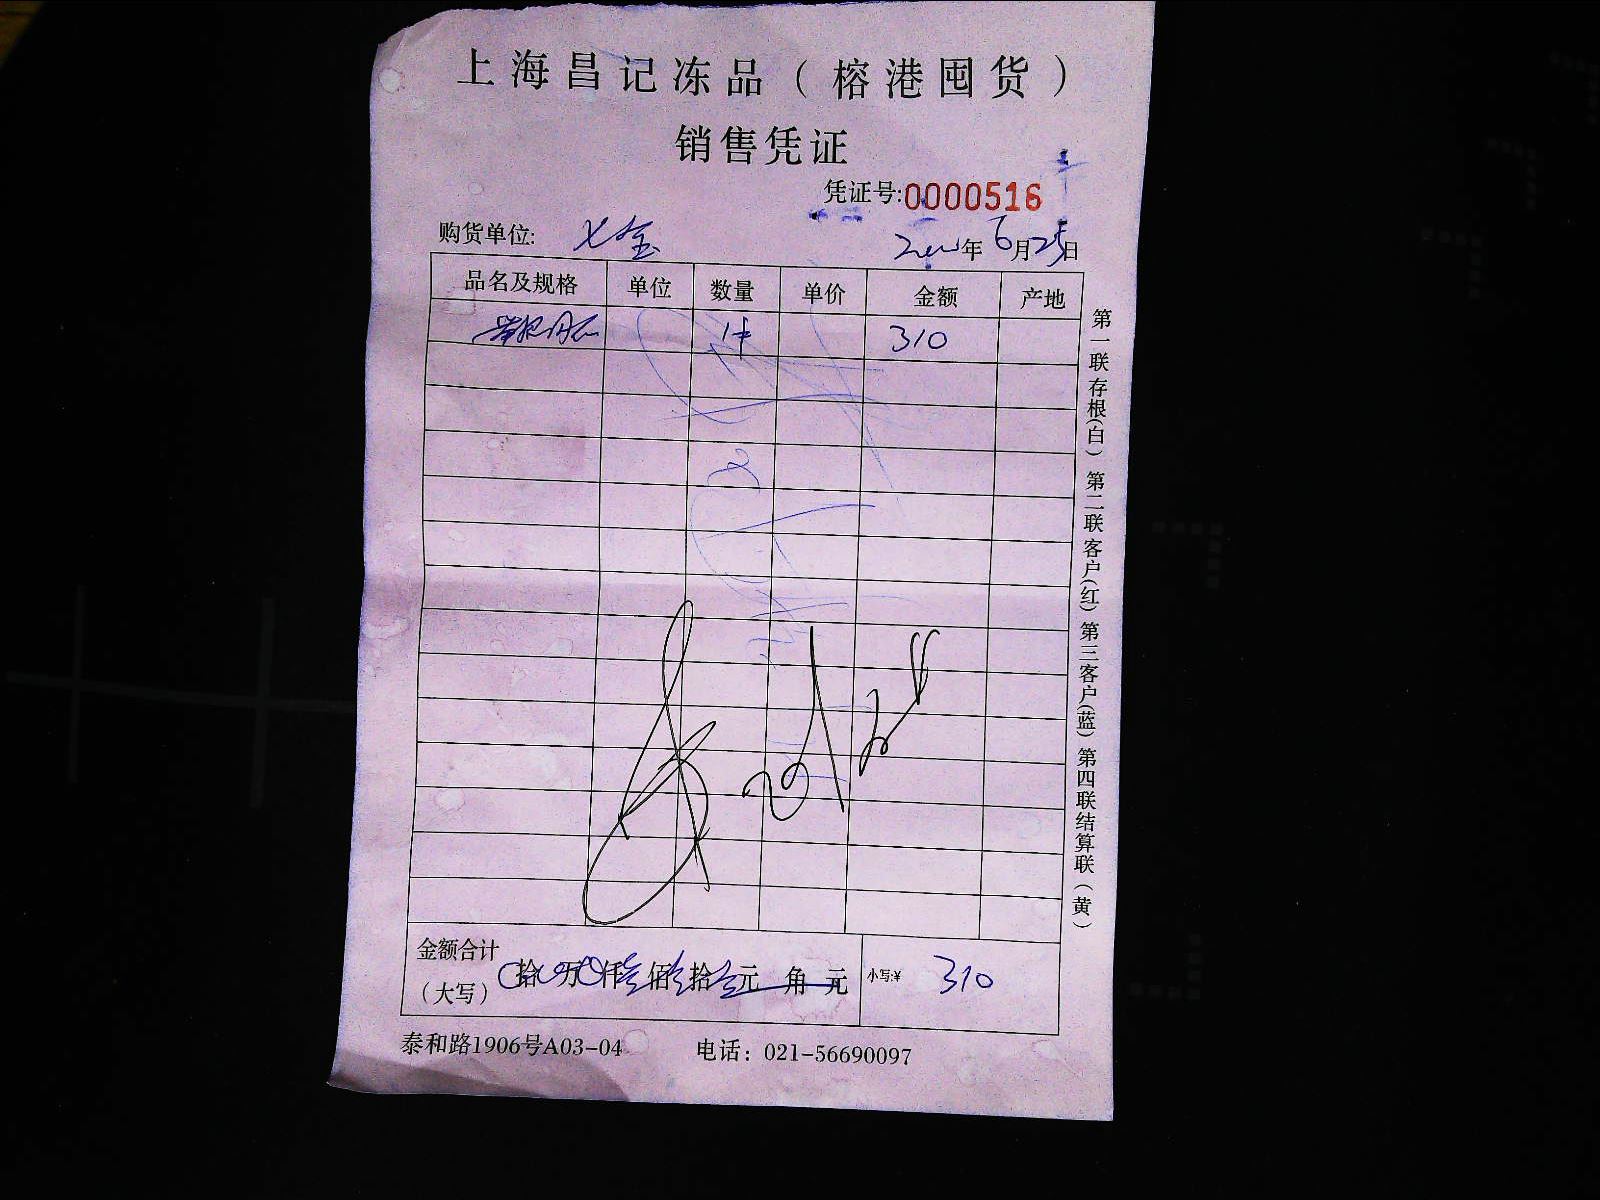 上海昌记冻品（榕港囤货）
销售凭证
凭证号:0000516
购货单位:
年 6月25日
品名及规格 单位 数量 单价 金额 产地
1件 310
第一联存根(白) 第二联客户(红) 第三客户(蓝) 第四联结算联(黄)
金额合计
（大写） 拾 万 仟 佰 拾 元 角 元 小写:¥ 310
泰和路1906号A03-04 电话：021-56690097